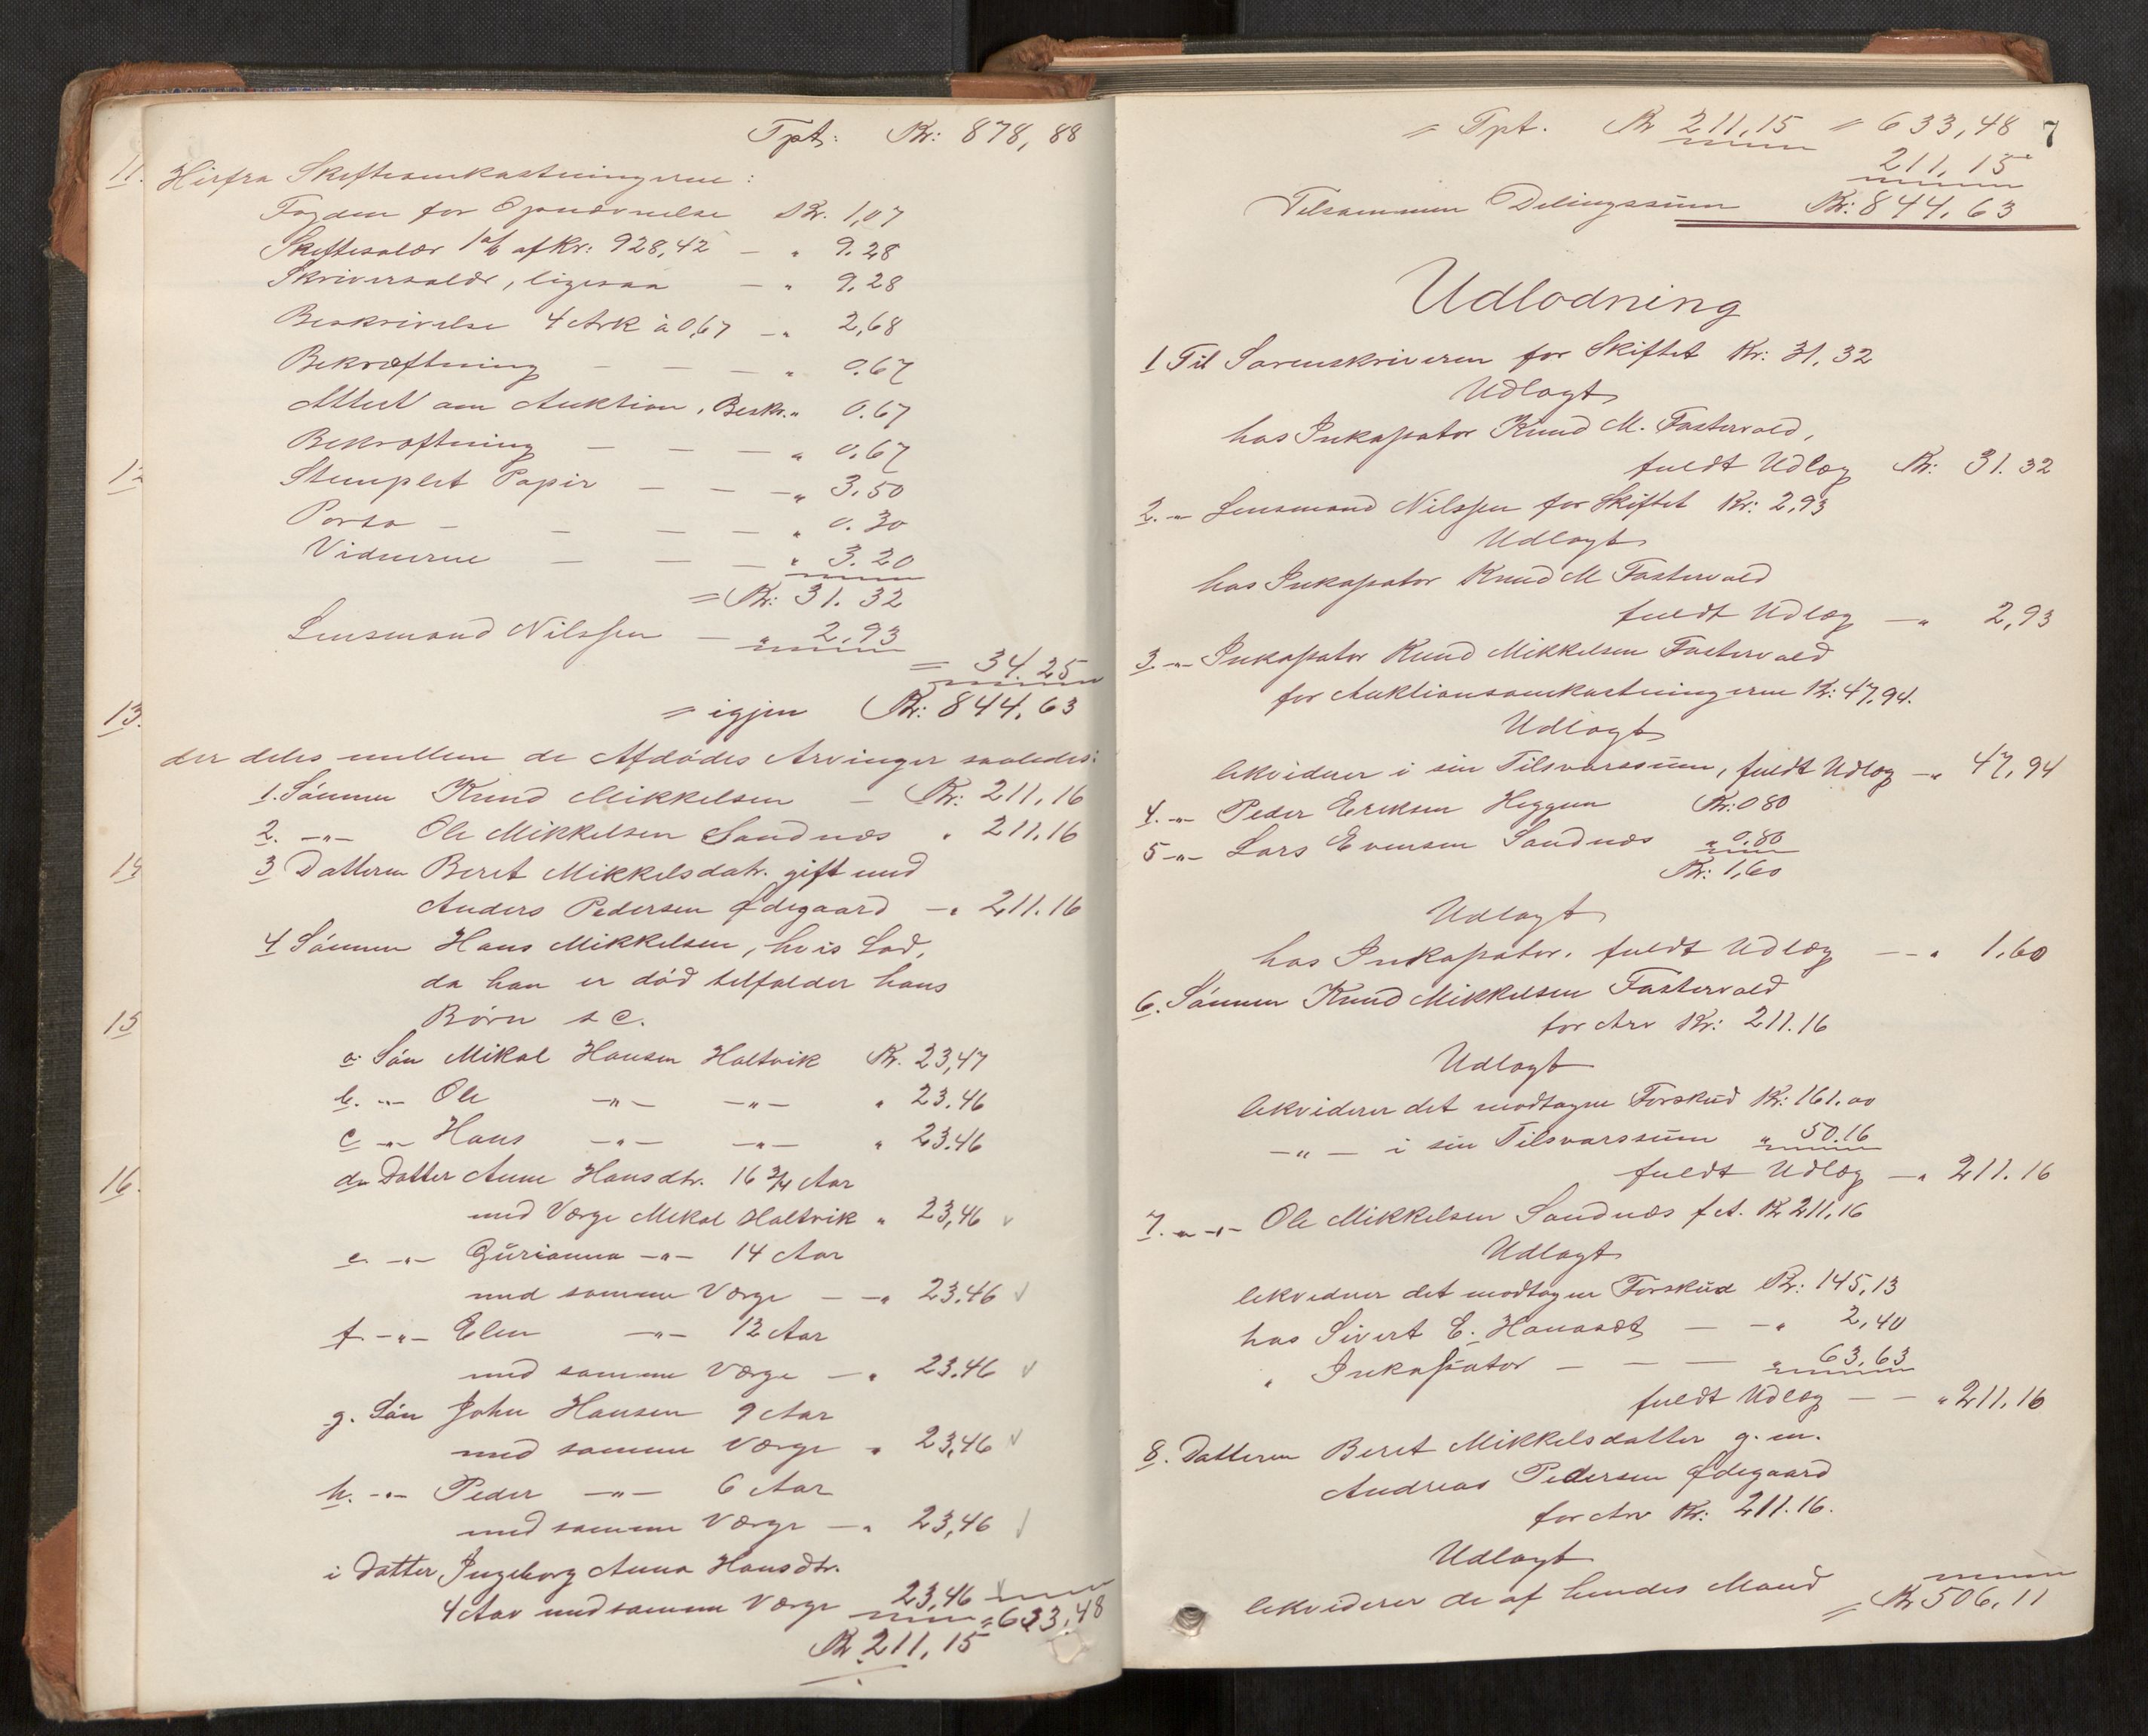 Tpt: Kr: 878,88
Herfra Skifteomkostningerne:
Fogden for Opnævnelse Kr. 1,07
Skiftesalær 1% af Kr: 928,42 — " 9.28
Skriversalær, ligesaa — " 9,28
Beskrivelse 4 Ark à 0,67 — " 2,68
Bekræftning — — — " 0.67
Attest om Auktion, Beskr. " 0.67
Bekræftning — — — " 0,67
Stemplet Papir — — — " 3,50
Porto — — — — " 0.30
Vidnerne — — — " 3.20
= Kr: 31.32
Lensmand Nilssen — " 2,93
= 34.25
= igjen Kr: 844,63
der deles mellem de Afdødes Arvinger saaledes:
1. Sønnen Knud Mikkelsen — Kr: 211,16
2. —"— Ole Mikkelsen Sandnæs " 211.16
3 Datteren Beret Mikkelsdatr. gift med
Anders Pedersen Ødegaard —" 211.16
4 Sønnen Hans Mikkelsen, hvis Lod,
da han er død tilfalder hans
Børn s c.
a. Søn Mikal Hansen Holtvik Kr. 23,47
b. —"— Ole —"— —"— " 23.46
c —"— Hans —"— —"— " 23.46
d Datter Anne Hansdtr. 16 3/4 Aar
med Værge Mikal Holtvik " 23,46
e. —"— Gurianna —"— 14 Aar
med samme Værge — —" 23.46
f. —"— Elen —"— 12 Aar
med samme Værge —" 23.46
g. Søn John Hansen 9 Aar
med samme Værge " 23,46
h. —"— Peder —"— 6 Aar
med samme Værge —" 23,46
i Datter Ingeborg Anna Hansdtr.
4 Aar med samme Værge 23,46
= 633,48
Kr 211,15
11.
12
13.
14
15
16.
7
= Tpt. Kr 211,15 = 633,48
211,15
Tilsammen Delingssum Kr: 844,63
Udlodning
1 Til Sorenskriveren for Skiftet Kr: 31,32
Udlagt
hos Inkassator Knud M. Fastervold,
fuldt Udlæg Kr: 31.32
2. —"— Lensmand Nilssen for Skiftet Kr: 2,93
Udlagt
hos Inkassator Knud M Fastervold
fuldt Udlæg —" 2,93
3. —"— Inkassator Knud Mikkelsen Fastervold
for Auktionsomkostningerne Kr: 47,94.
Udlagt
likviderer i sin Tilsvarssum, fuldt Udlæg —" 47,94
4. —"— Peder Eriksen Heggem Kr: 0 80
5 —"— Lars Evensen Sandnæs " 0.80
Kr: 1,60
Udlagt
hos Inkassator. fuldt Udlæg — —" 1,60
6. Sønnen Knud Mikkelsen Fastervold
for Arv Kr: 211.16
Udlagt
likviderer det modtagne Forskud Kr: 161.00
—"— i sin Tilsvarssum " 50.16
fuldt Udlæg —" 211.16
7. —"— Ole Mikkelsen Sandnæs f A. Kr 211,16
Udlagt
likviderer det modtagne Forskud Kr: 145,13
hos Sivert E. — —" 2,40
" Inkassator — — — " 63,63
fuldt Udlæg — — " 211.16
8. Datteren Beret Mikkelsdatter g. m.
Andreas Pedersen Ødegaard
for Arv Kr: 211.16.
Udlagt
likviderer de af hendes Mand
= Kr 506,11